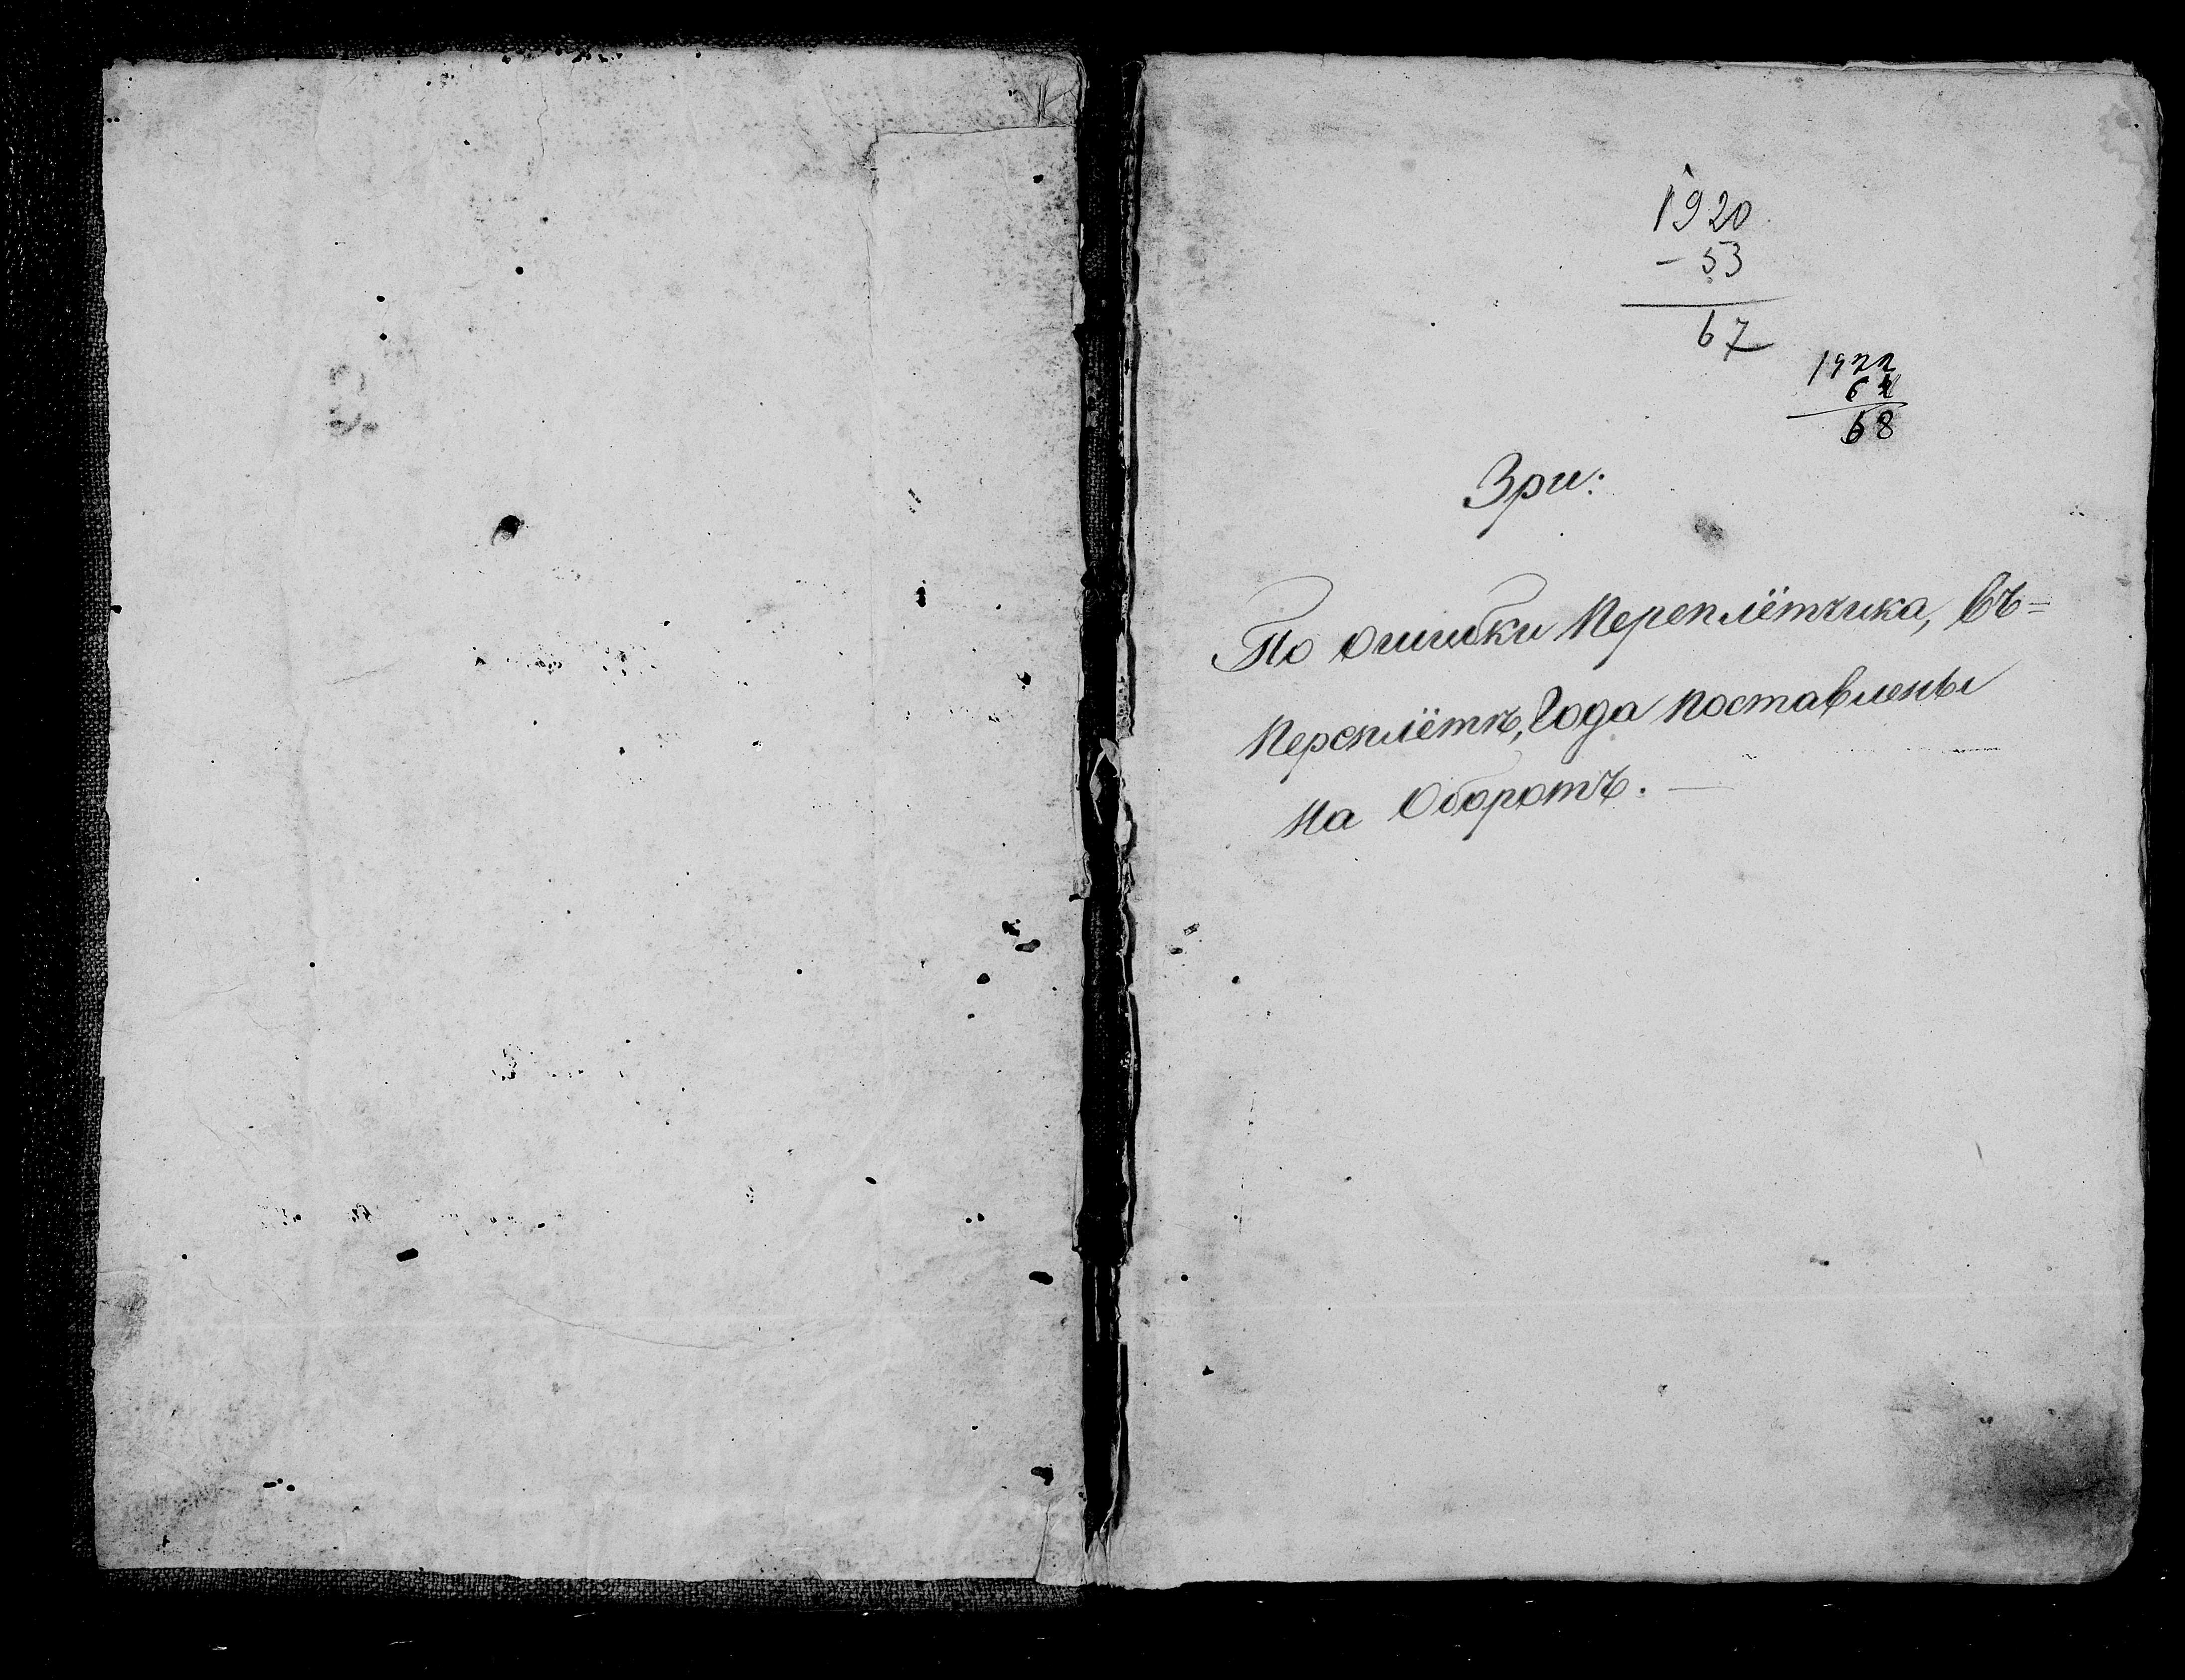 1920
- 53
67
1922
68
Зри:
По ошибки Переплётчика, въ=
Переплётъ, Года поставлены
на Оборотъ. —